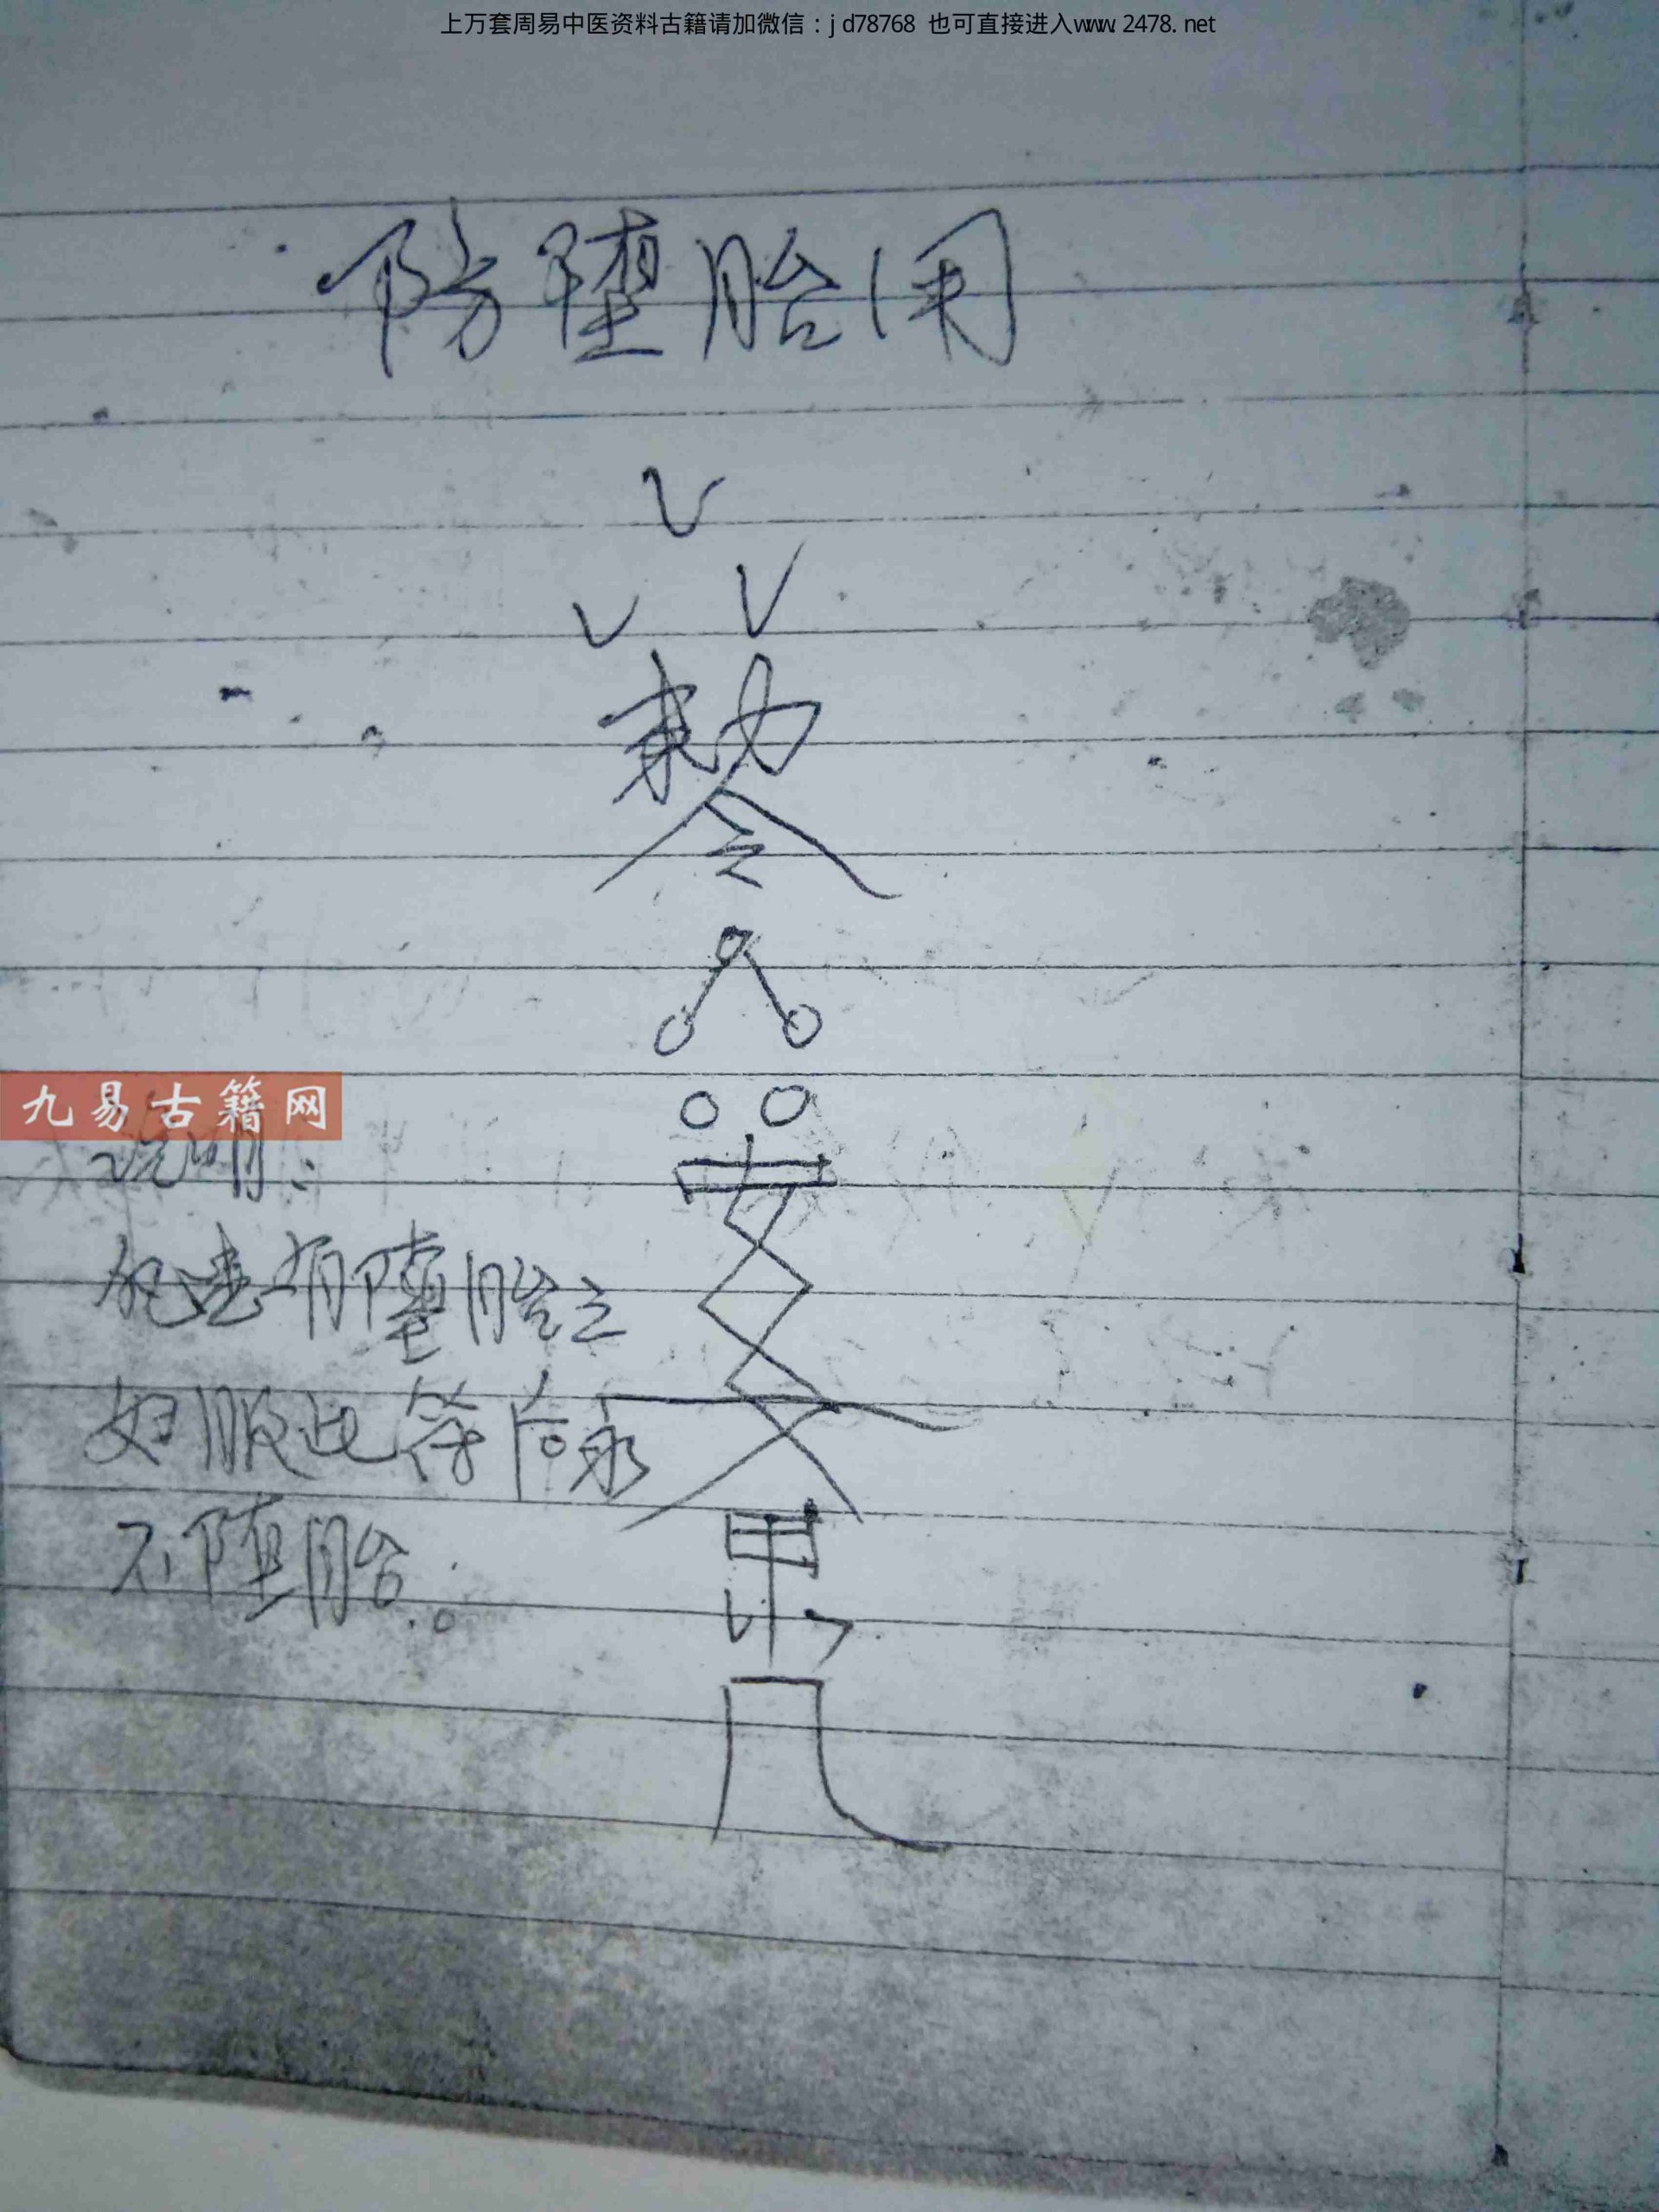 上万套周易中医资料古籍请加微信：jd78768 也可直接进入www.2478.net
防堕胎用
勅
令
九易古籍网
说明：
有堕胎之
妇服此符后永
不堕胎。